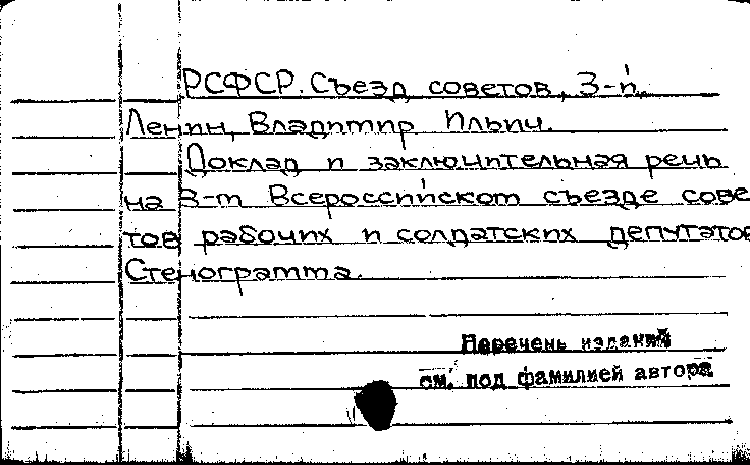 РСФСР. Съезд советов, 3-й.
Ленин, Владимир Ильич.
Доклад и заключительная речь
на 3-м Всероссийском съезде сове
тов рабочих и солдатских депутатов
Стенограмма.
Перечень изданий
см. под фамилией автора